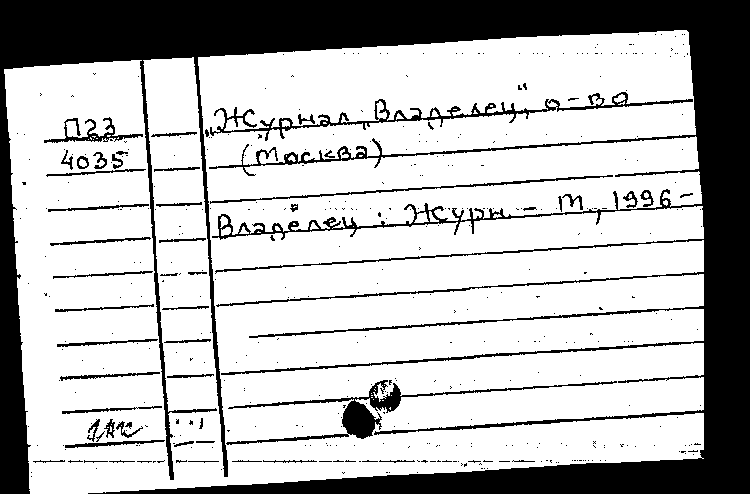 П23
4035
„Журнал „Владелец“, о-во
(Москва)
Владелец: Журн. – М., 1996–